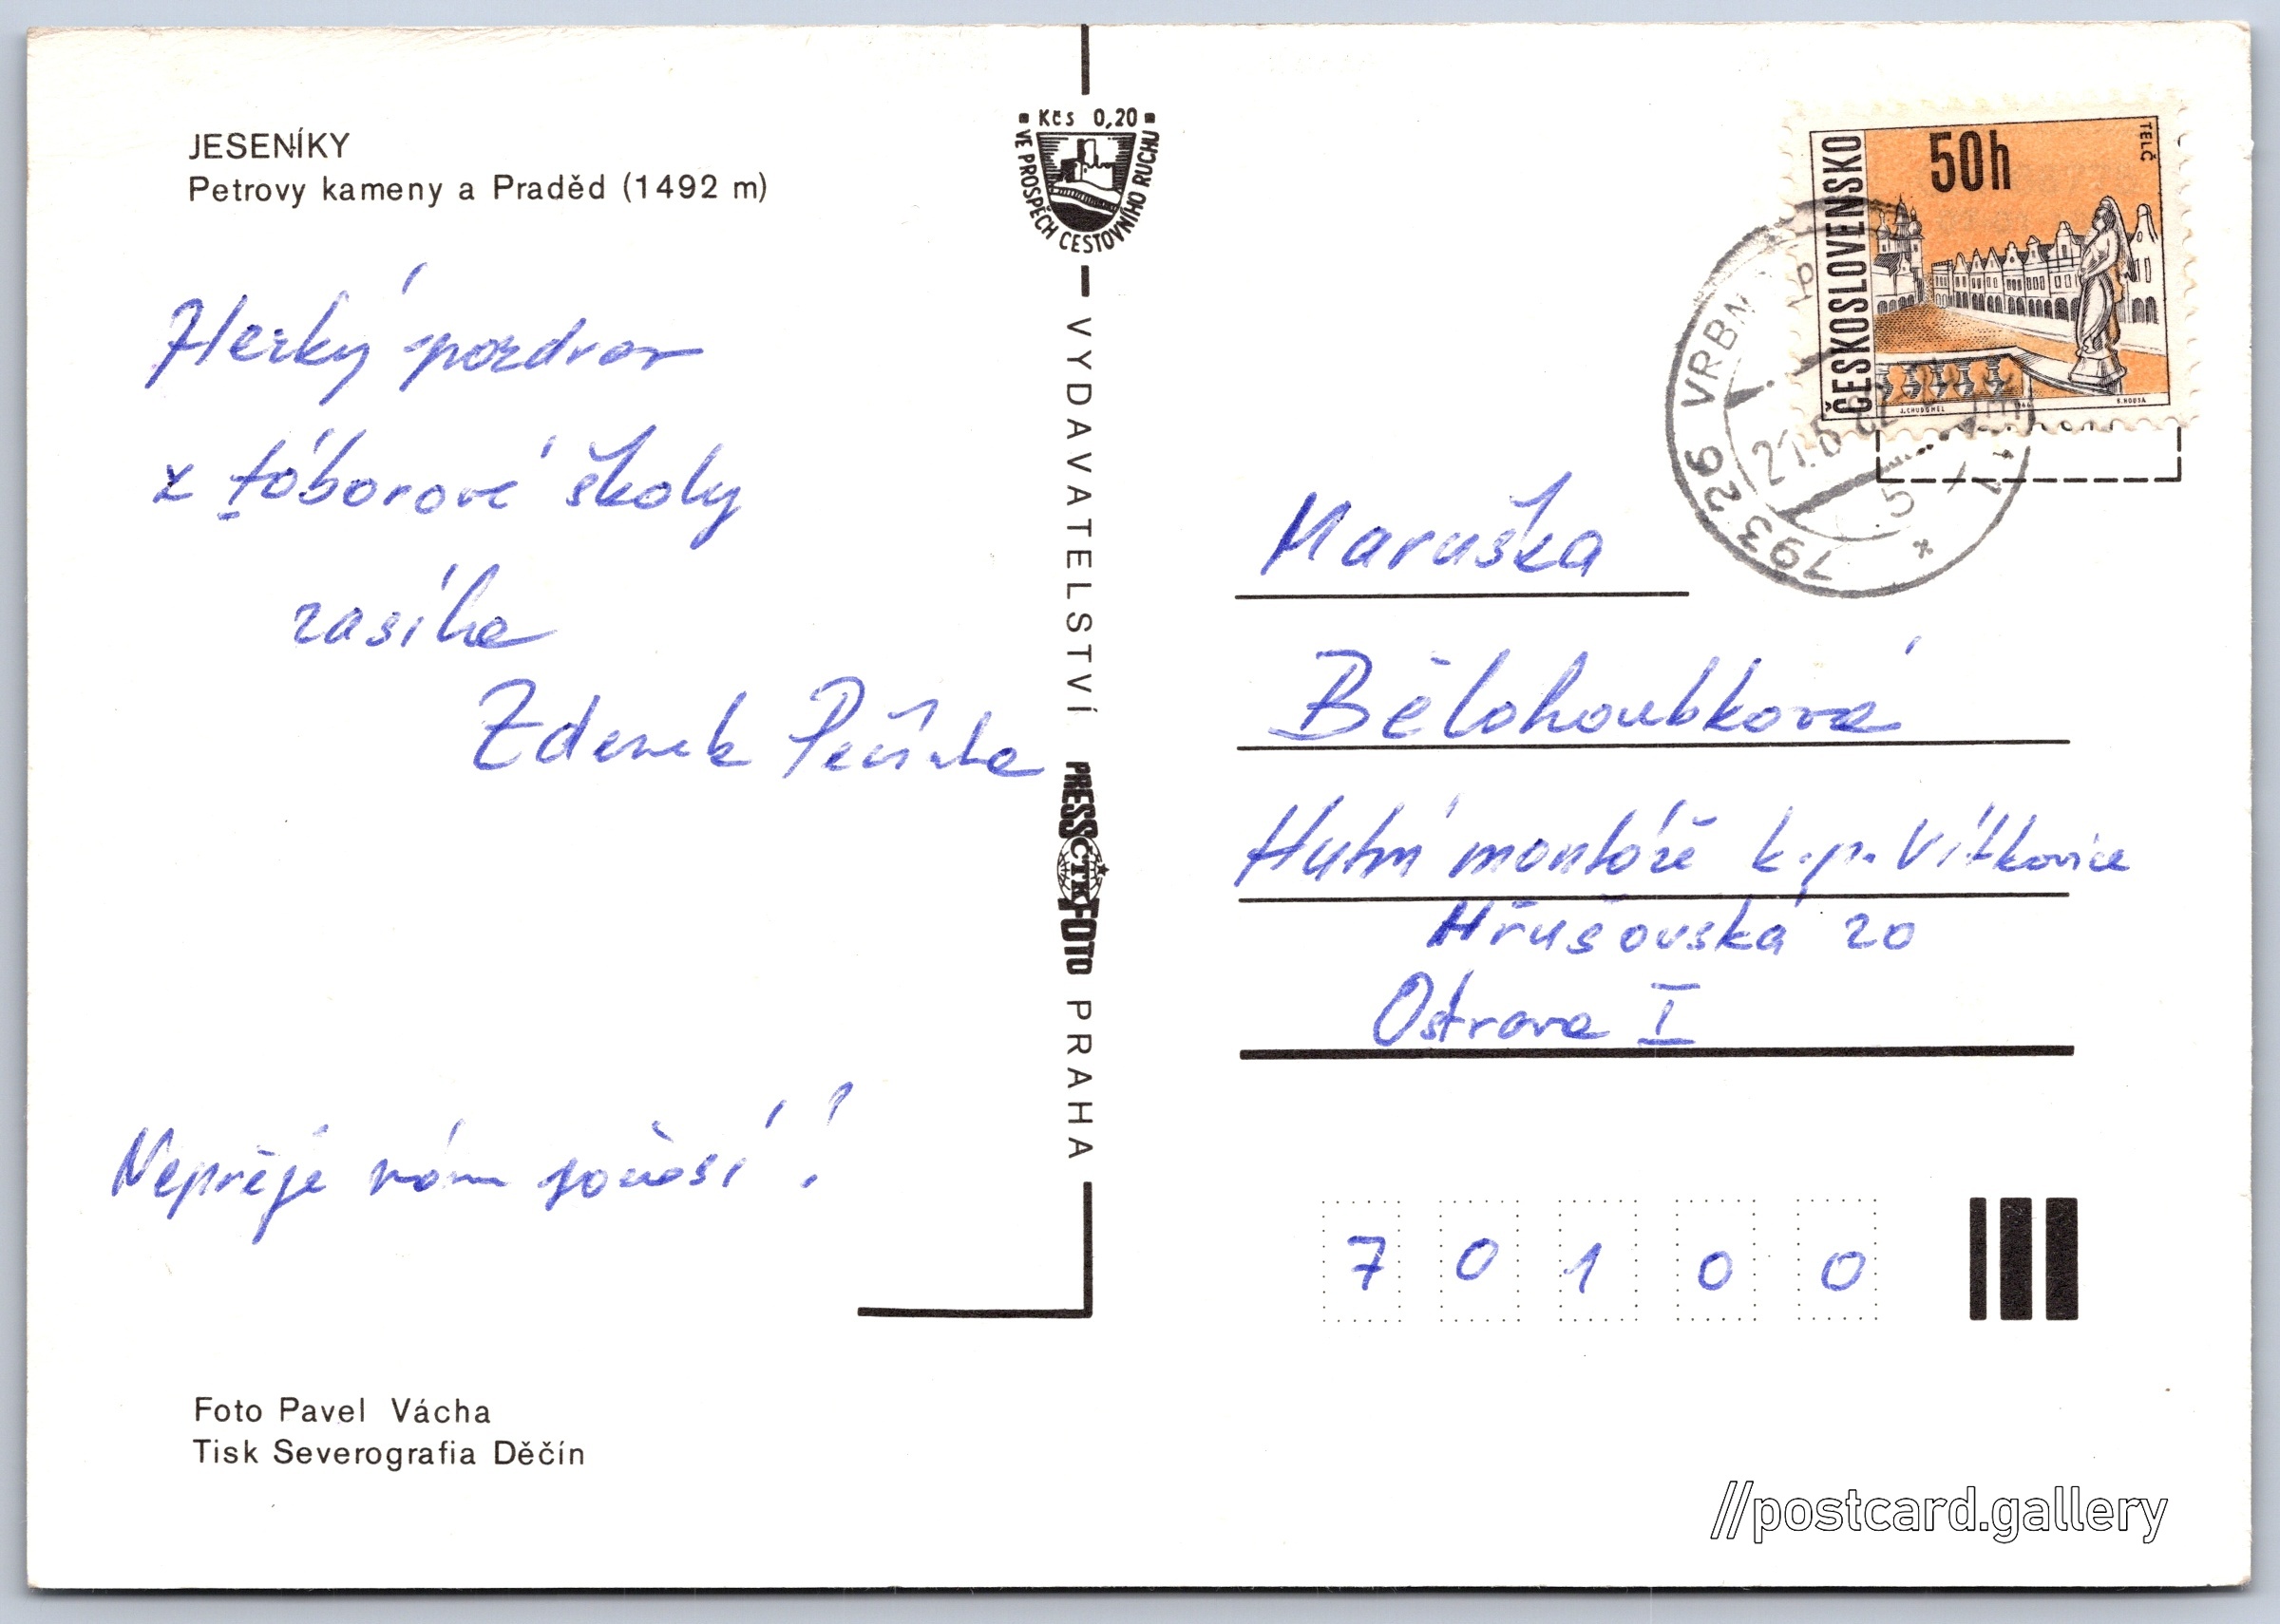 JESENÍKY
Petrovy kameny a Praděd (1492 m)
Kčs 0,20
VE PROSPĚCH CESTOVNÍHO RUCHU
Hezký pozdrav
z táborové školy
zasílá
Zdenek
Nepřeje nám počasí!
VYDAVATELSTVÍ PRESSFOTO PRAHA
ČTK
Foto Pavel Vácha
Tisk Severografia Děčín
ČESKOSLOVENSKO
50h
TELČ
J.CHUDOMEL
793 26 VRBN
21.6
5
Maruška
Bělohoubková
Hutní montáže k.p. Vítkovice
Hrušovská 20
Ostrava I
7 0 1 0 0
//postcard.gallery